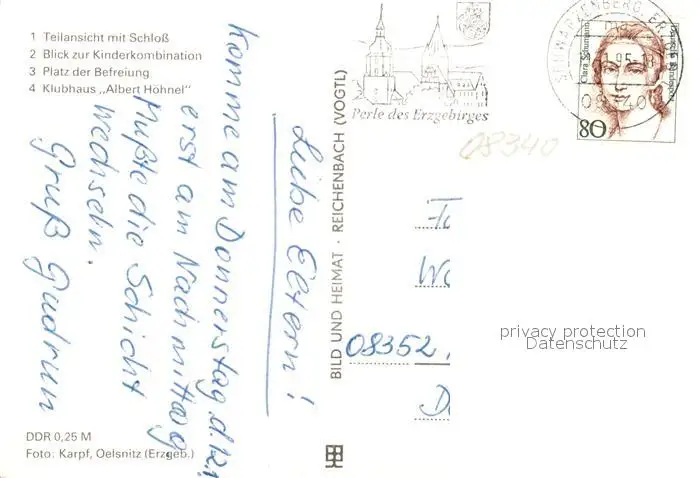 1 Teilansicht mit Schloß
2 Blick zur Kinderkombination
3 Platz der Befreiung
4 Klubhaus „Albert Höhnel"
Liebe Eltern!
Komme am Donnerstag d. 12.1.
erst am Nachmittag
Mußte die Schicht
wechseln.
Gruß Gudrun
DDR 0,25 M
Foto: Karpf, Oelsnitz (Erzgeb.)
BILD UND HEIMAT · REICHENBACH (VOGTL)
Perle des Erzgebirges
SCHWARZENBERG, ERZGEB
08340
Clara Schumann
Deutsche Bundespost
80
08340
08352
privacy protection
Datenschutz